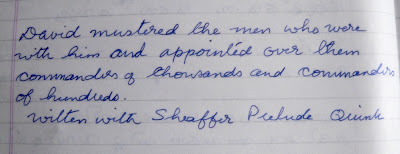 David mustered the men who were
with him and appointed over them
commanders of thousands and commanders
of hundreds.
written with Sheaffer Prelude Quink